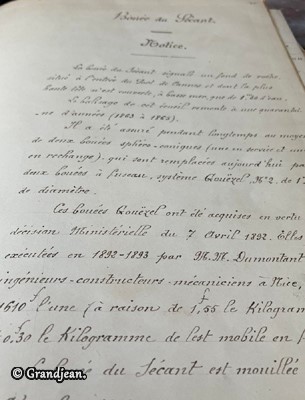 Bouée du Sécant.
Notice.
La bouée du Sécant signale un fond de roche
situé à l'entrée du Port de et dont la plus
haute tête n'est couverte, à basse mer, que de d'eau.
Le balisage de cet écueil remonte à une quarantai-
ne d'années (1863 à 1865).
Il a été assuré pendant longtemps au moyen
de deux bouées sphéro-coniques (une en service et un
en rechange), qui sont remplacées aujourd'hui par
deux bouées à fuseau, système Quëzel N° 2, de 1
de diamètre.
Ces bouées Quëzel ont été acquises en vertu
décision Ministérielle du 7 Avril 1892. Elles
exécutées en 1892-1893 par M.M. Dumontant
ingénieurs-constructeurs-mécaniciens à Nice,
1610 f l'une (à raison de 1f,55 le Kilogram
0,30 le Kilogramme de lest mobile en f
bouée du Sécant est mouillée
© Grandjean.